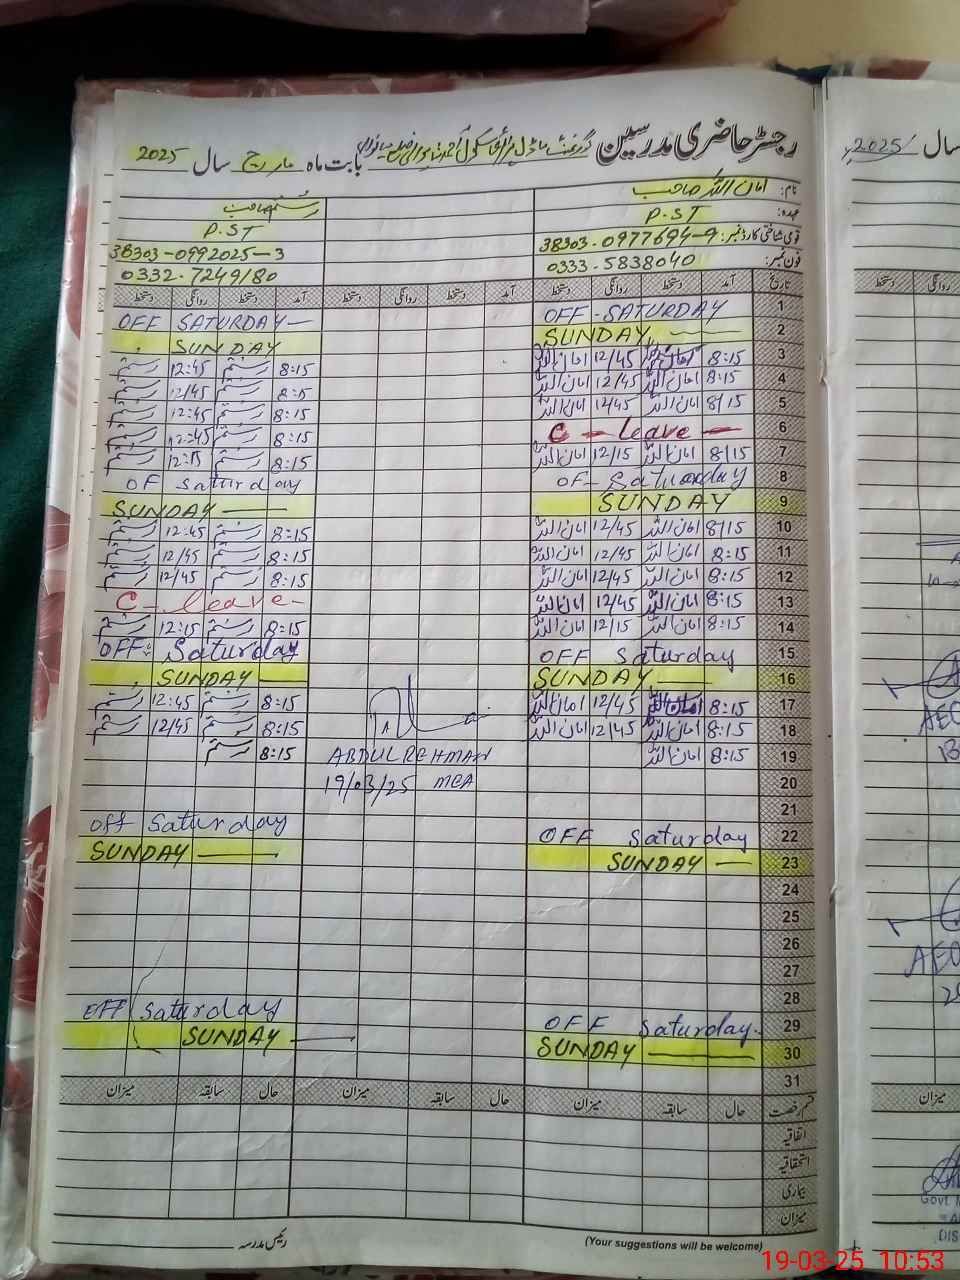 رجسٹر حاضری مدرسین گورنمنٹ ماڈل پرائمری سکول بابت ماہ مارچ سال 2025
سال 2025
نام: امان اللہ صاحب
رستم صاحب
عہدہ: P.ST
P.ST
قومی شناختی کارڈ نمبر: 38303-0977694-9
38303-0992025-3
فون نمبر: 0333-5838040
0332-7249180
تاریخ آمد دستخط روانگی دستخط آمد دستخط روانگی دستخط آمد دستخط روانگی دستخط
1 OFF-SATURDAY OFF SATURDAY—
2 SUNDAY — SUNDAY
3 8:15 امان اللہ 12/45 امان اللہ 8:15 رستم 12:45 رستم
4 8:15 امان اللہ 12/45 امان اللہ 8:15 رستم 12/45 رستم
5 8/15 امان اللہ 12/45 امان اللہ 8:15 رستم 12:45 رستم
6 C — leave — 8:15 رستم 12:45 رستم
7 8/15 امان اللہ 12/15 امان اللہ 8:15 رستم 12:15 رستم
8 OF- Saturday OF Saturday
9 SUNDAY SUNDAY —
10 8/15 امان اللہ 12/45 امان اللہ 8:15 رستم 12:45 رستم
11 8:15 امان اللہ 12/45 امان اللہ 8:15 رستم 12/45 رستم
12 8:15 امان اللہ 12/45 امان اللہ 8:15 رستم 12/45 رستم
13 8:15 امان اللہ 12/45 امان اللہ C - leave -
14 8:15 امان اللہ 12/15 امان اللہ 8:15 رستم 12:15 رستم
15 OFF Saturday OFF: Saturday
16 SUNDAY — SUNDAY —
17 8:15 امان اللہ 12/45 امان اللہ 8:15 رستم 12:45 رستم
18 8:15 امان اللہ 12/45 امان اللہ 8:15 رستم 12/45 رستم
19 8:15 امان اللہ ABDUL REHMAN 8:15 رستم
20 19/03/25 MEA
21
22 OFF Saturday off Saturday
23 SUNDAY — SUNDAY —
24
25
26
27
28
29 OFF Saturday. OFF Saturday
30 SUNDAY — SUNDAY —
31
قسم رخصت حال سابقہ میزان حال سابقہ میزان حال سابقہ میزان
اتفاقیہ
استحقاقیہ
بیماری
میزان
(Your suggestions will be welcome) رئیس مدرسہ
دستخط روانگی
AEO
AEO
میزان
Govt
19-03-25 10:53